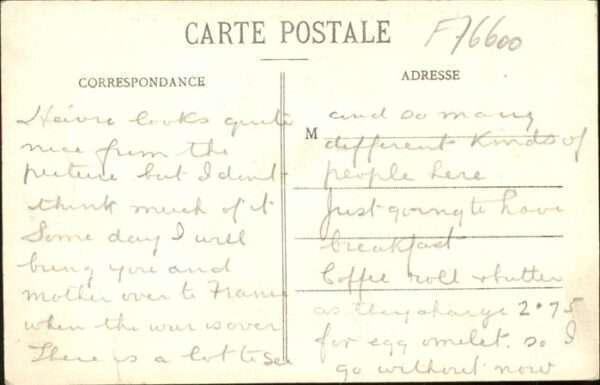 CARTE POSTALE
F76600
CORRESPONDANCE
Havre looks quite
nice from the
picture but I don't
think much of it
Some day I will
bring you and
mother over to France
when the war is over
There is a lot to see
ADRESSE
M
and so many
different kinds of
people here
Just going to have
breakfast
Coffee roll & butter
as they charge 2.75
for egg omelet. so I
go without now